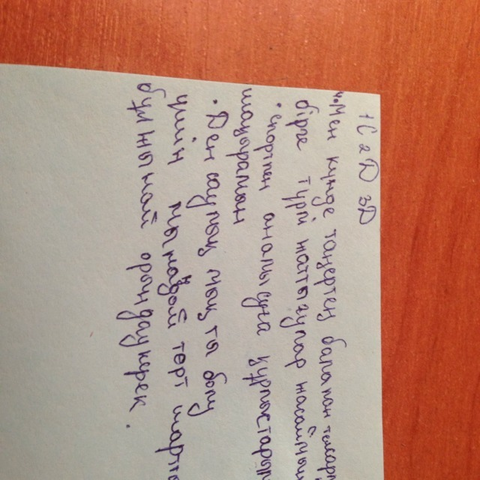 1С 2D 3D
4. Мен күнде таңертең балапан
бірге түрлі жаттығулар жасаймын
• спортпен аналысуға құрлыстарын
шақырамын
• Ден саулық мықты болу
үшін мынадай төрт шартты
бұлжымай орындау керек.